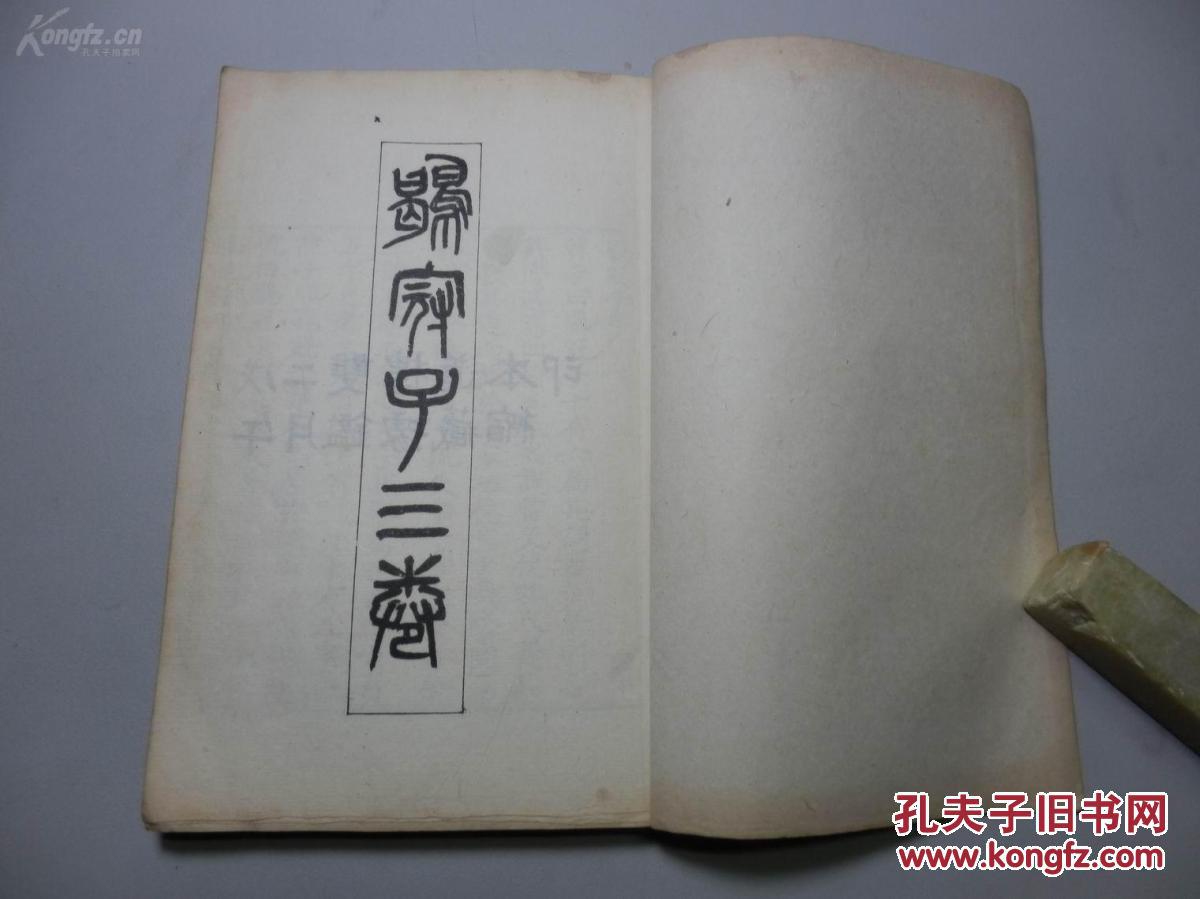 Kongfz.cn
孔夫子拍卖网
鶡冠子三卷
孔夫子旧书网
www.kongfz.com